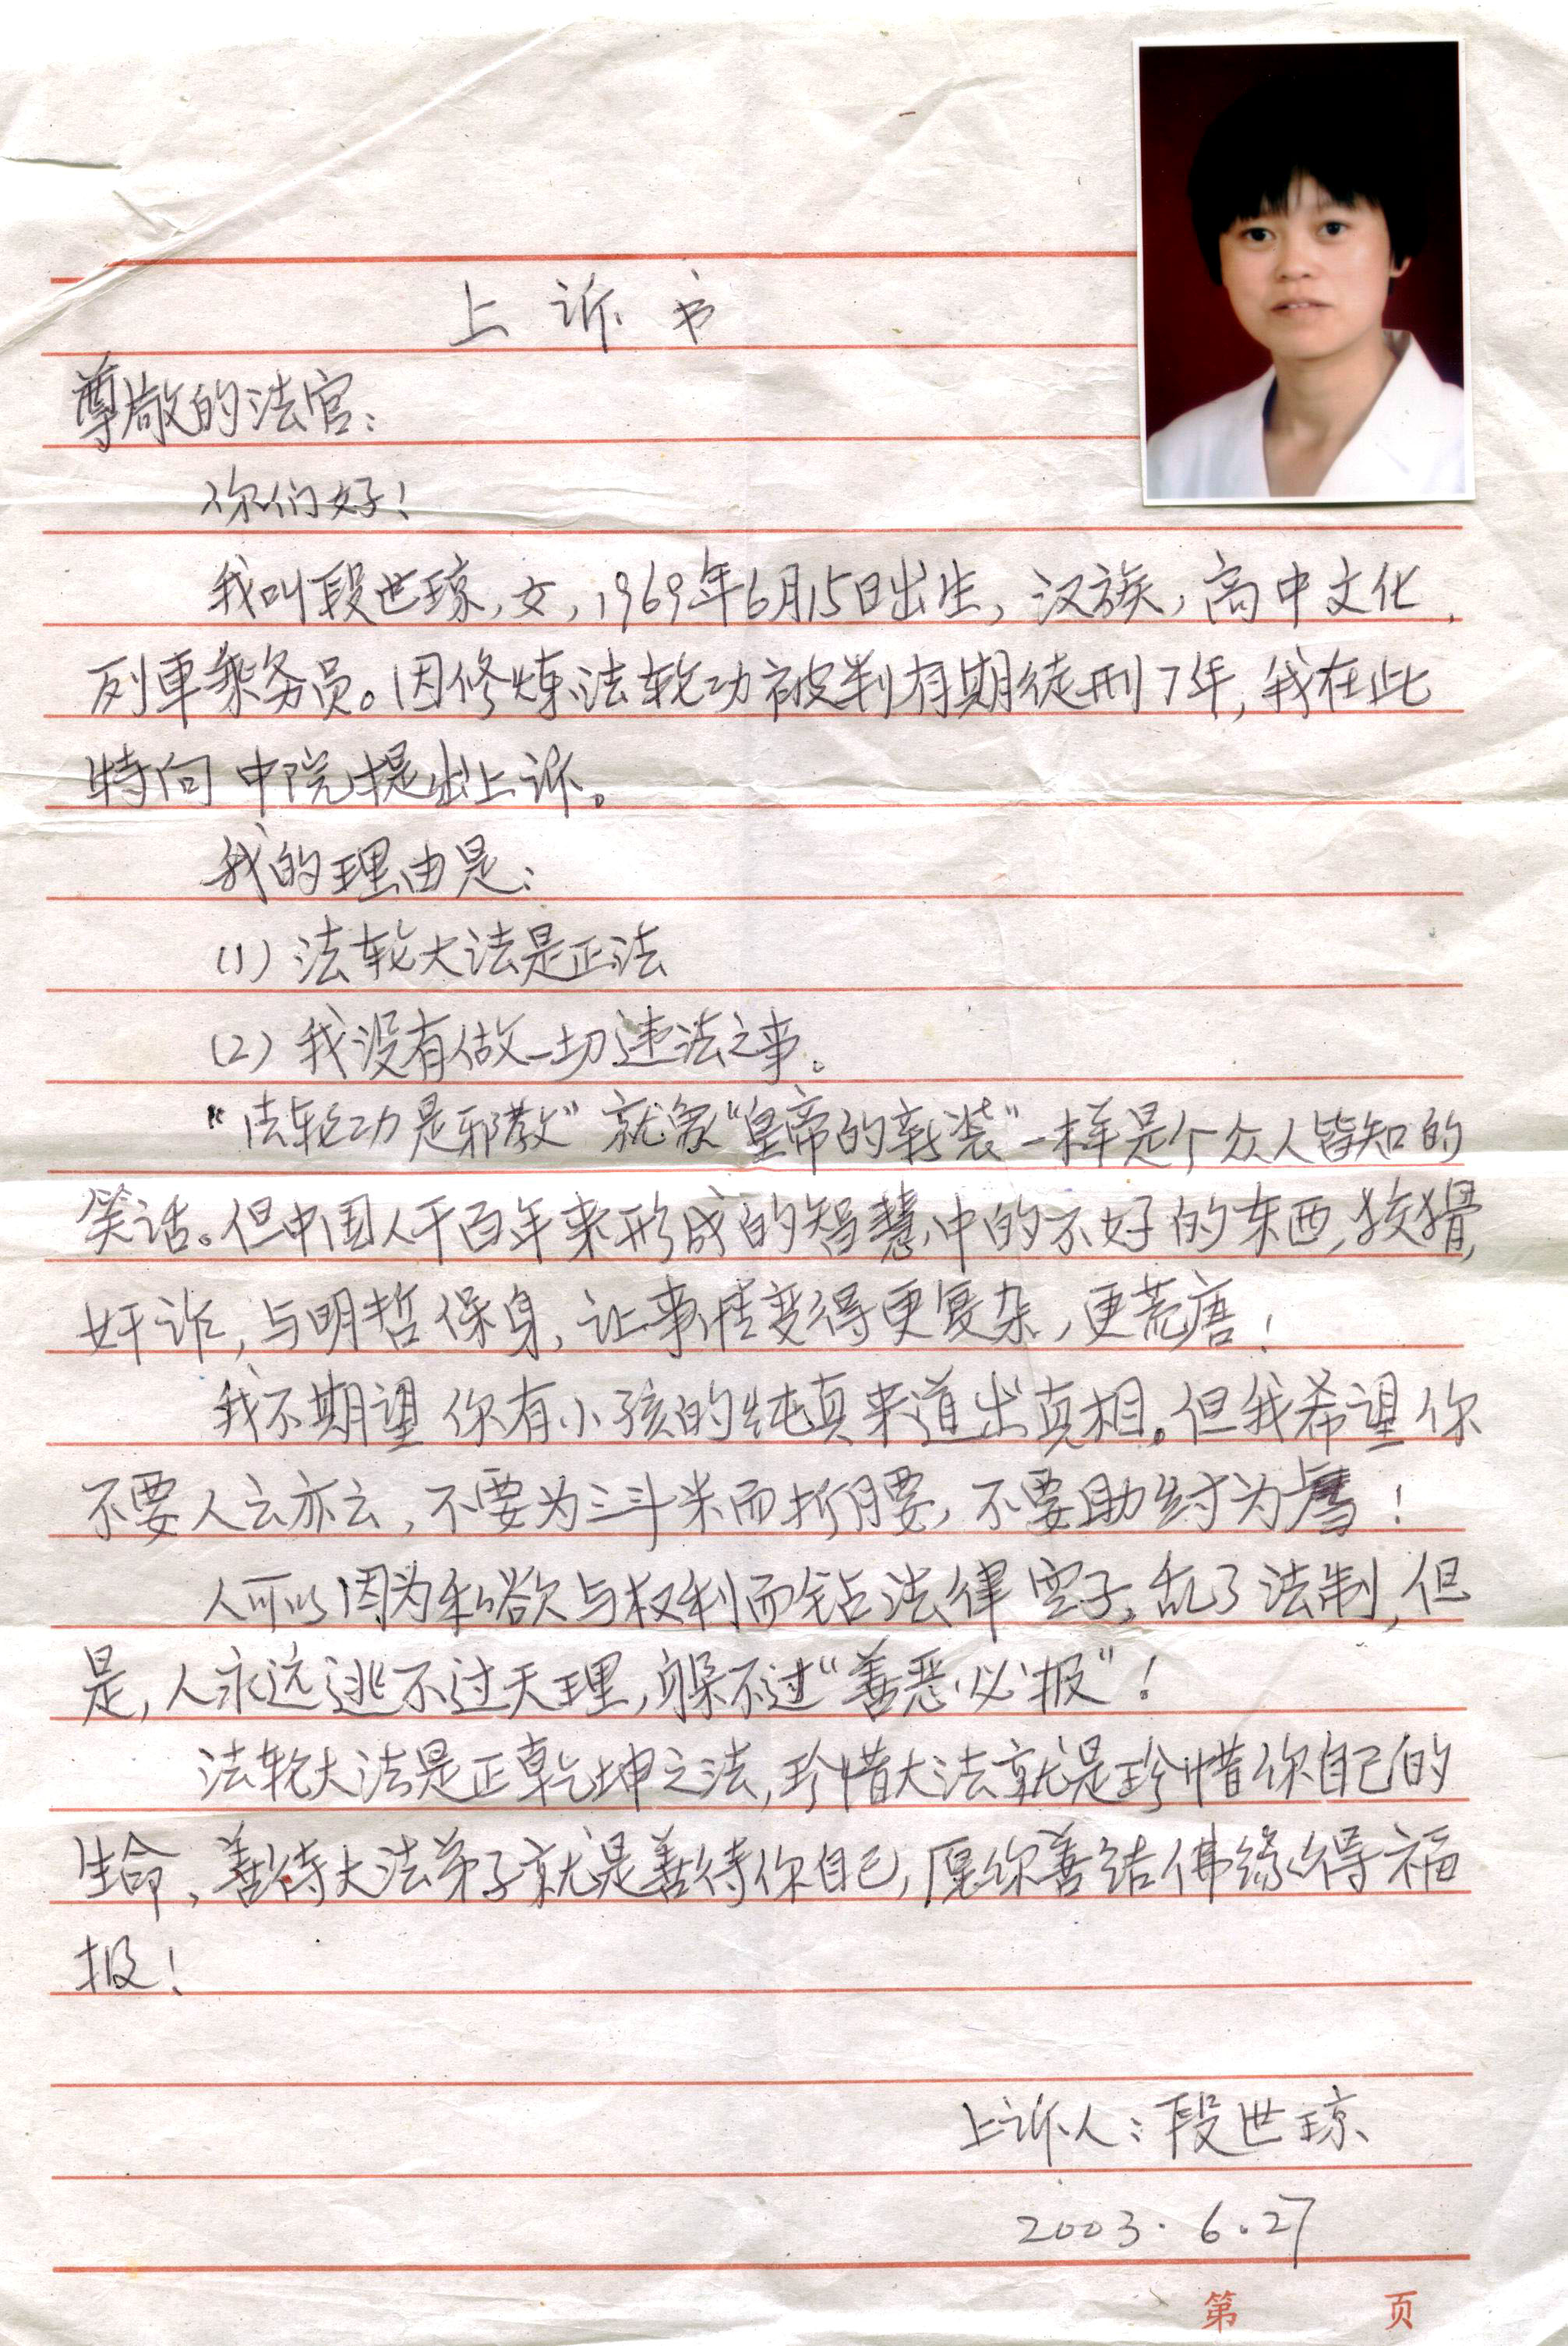 上诉书
尊敬的法官：
你们好！
我叫段世琼，女，1969年6月15日出生，汉族，高中文化，
列车乘务员。因修炼法轮功被判有期徒刑7年，我在此
特向中院提出上诉。
我的理由是：
(1) 法轮大法是正法
(2) 我没有做一切违法之事。
“法轮功是邪教”就象“皇帝的新装”一样是个众人皆知的
笑话。但中国人千百年来形成的智慧中的不好的东西，狡猾，
奸诈，与明哲保身，让事情变得更复杂，更荒唐！
我不期望你有小孩的纯真来道出真相。但我希望你
不要人云亦云，不要为三斗米而折腰，不要助纣为虐！
人可以因为私欲与权利而钻法律空子，乱了法制，但
是，人永远逃不过天理，躲不过“善恶必报”！
法轮大法是正乾坤之法，珍惜大法就是珍惜你自己的
生命，善待大法弟子就是善待你自己，愿你善结佛缘得福
报！
上诉人：段世琼
2003.6.27
第 页